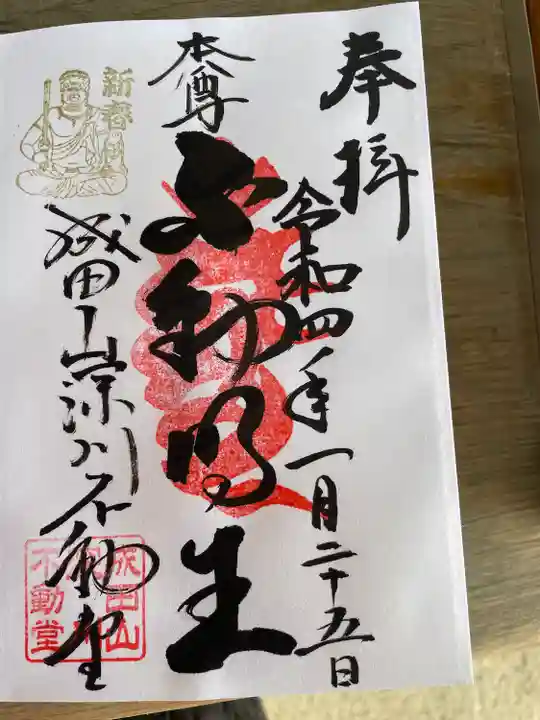 奉拝
令和四年一月二十五日
本尊
不動明王
新春
成田山深川不動堂
成田山
不動堂